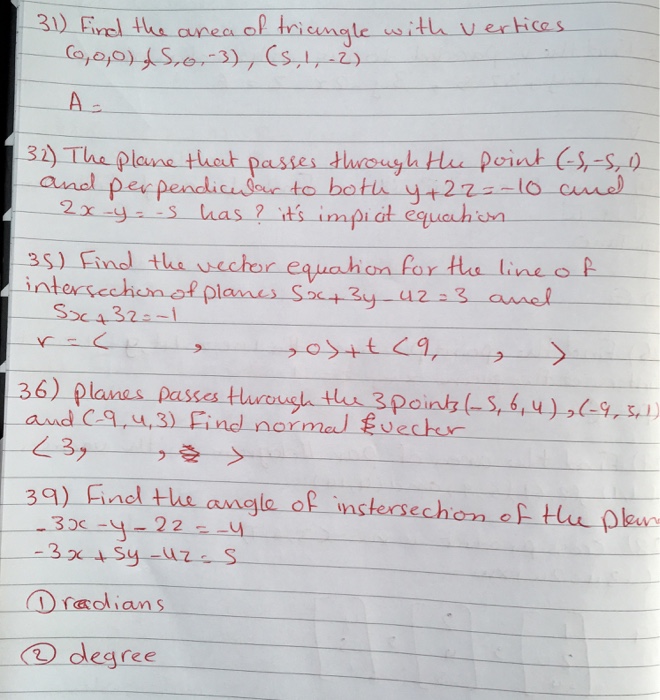 31) Find the area of triangle with vertices
(0,0,0) (5,0,-3), (5,1,-2)
A =
32) The plane that passes through the point (-5,-5,1)
and perpendicular to both y+2z=-10 and
2x-y=-5 has ? it's impicit equation
35) Find the vector equation for the line of
intersection of planes 5x+3y-4z=3 and
5x+3z=-1
r = < , ,0>+t <9, , >
36) planes passes through the 3 points (-5,6,4), (-9,5,1)
and (-9,4,3) Find normal vector
<3, , >
39) Find the angle of instersection of the plan
-3x-y-2z=-4
-3x+5y-4z=5
① radians
② degree